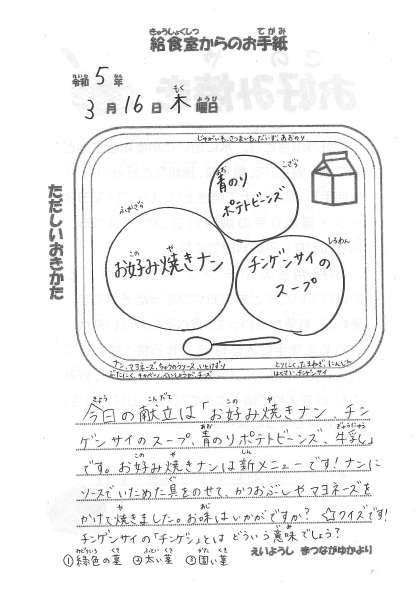 給食室からのお手紙
令和5年
3月16日木曜日
じゃがいも、さつまいも、だいず、あおのり
ただしいおきかた
こざら
青のり
ポテトビーンズ
ふかざら
お好み焼きナン
しるわん
チンゲンサイの
スープ
ナン、マヨネーズ、ちゅうのうソース、いとけずり
ぶたにく、キャベツ、べにしょうが、チーズ
とりにく、たまねぎ、にんじん
はくさい、チンゲンサイ
今日の献立は「お好み焼きナン、チン
ゲンサイのスープ、青のりポテトビーンズ、牛乳」
です。お好み焼きナンは新メニューです！ナンに
ソースでいためた具をのせて、かつおぶしやマヨネーズを
かけて焼きました。お味はいかがですか？☆クイズです！
チンゲンサイの「チンゲン」とはどういう意味でしょう？
①緑色の茎 ②太い茎 ③固い茎
えいようし まつながゆかより